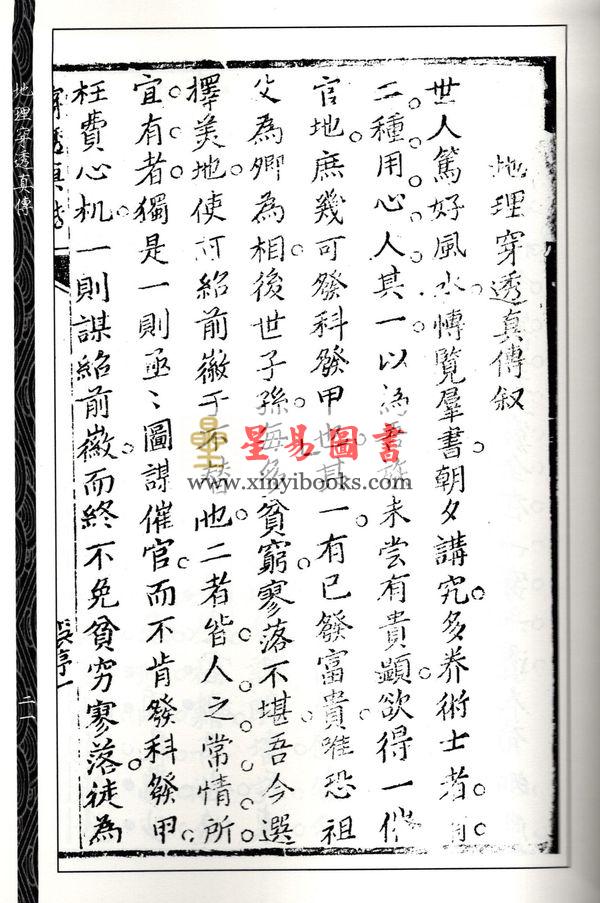 地理穿透真傳叙
世人篤好風水博覧羣書朝夕講究多养術士者有
二種用心人其一以為吾族未尝有貴顯欲得一催
官地庶幾可發科發甲也其一有已發富貴唯恐祖
父為卿為相後世子孫每多貧窮寥落不堪吾今選
擇美地使可紹前徽于不替也二者皆人之常情所
宜有者獨是一則亟〻圖謀催官而不肯發科發甲
枉費心机一則謀紹前徽而終不免貧穷寥落徒為
穿透真傳
吴序一
地理穿透真傳
二一
星易圖書
www.xinyibooks.com